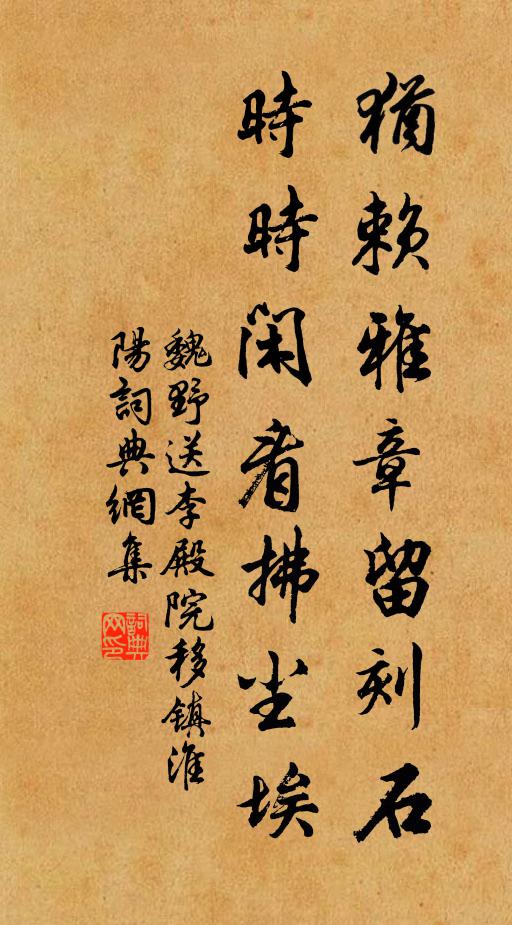 猶賴雅章留刻石
時時閑看拂尘埃
魏野送李殿院移鎮淮
陽詞典網集
詞典
网印